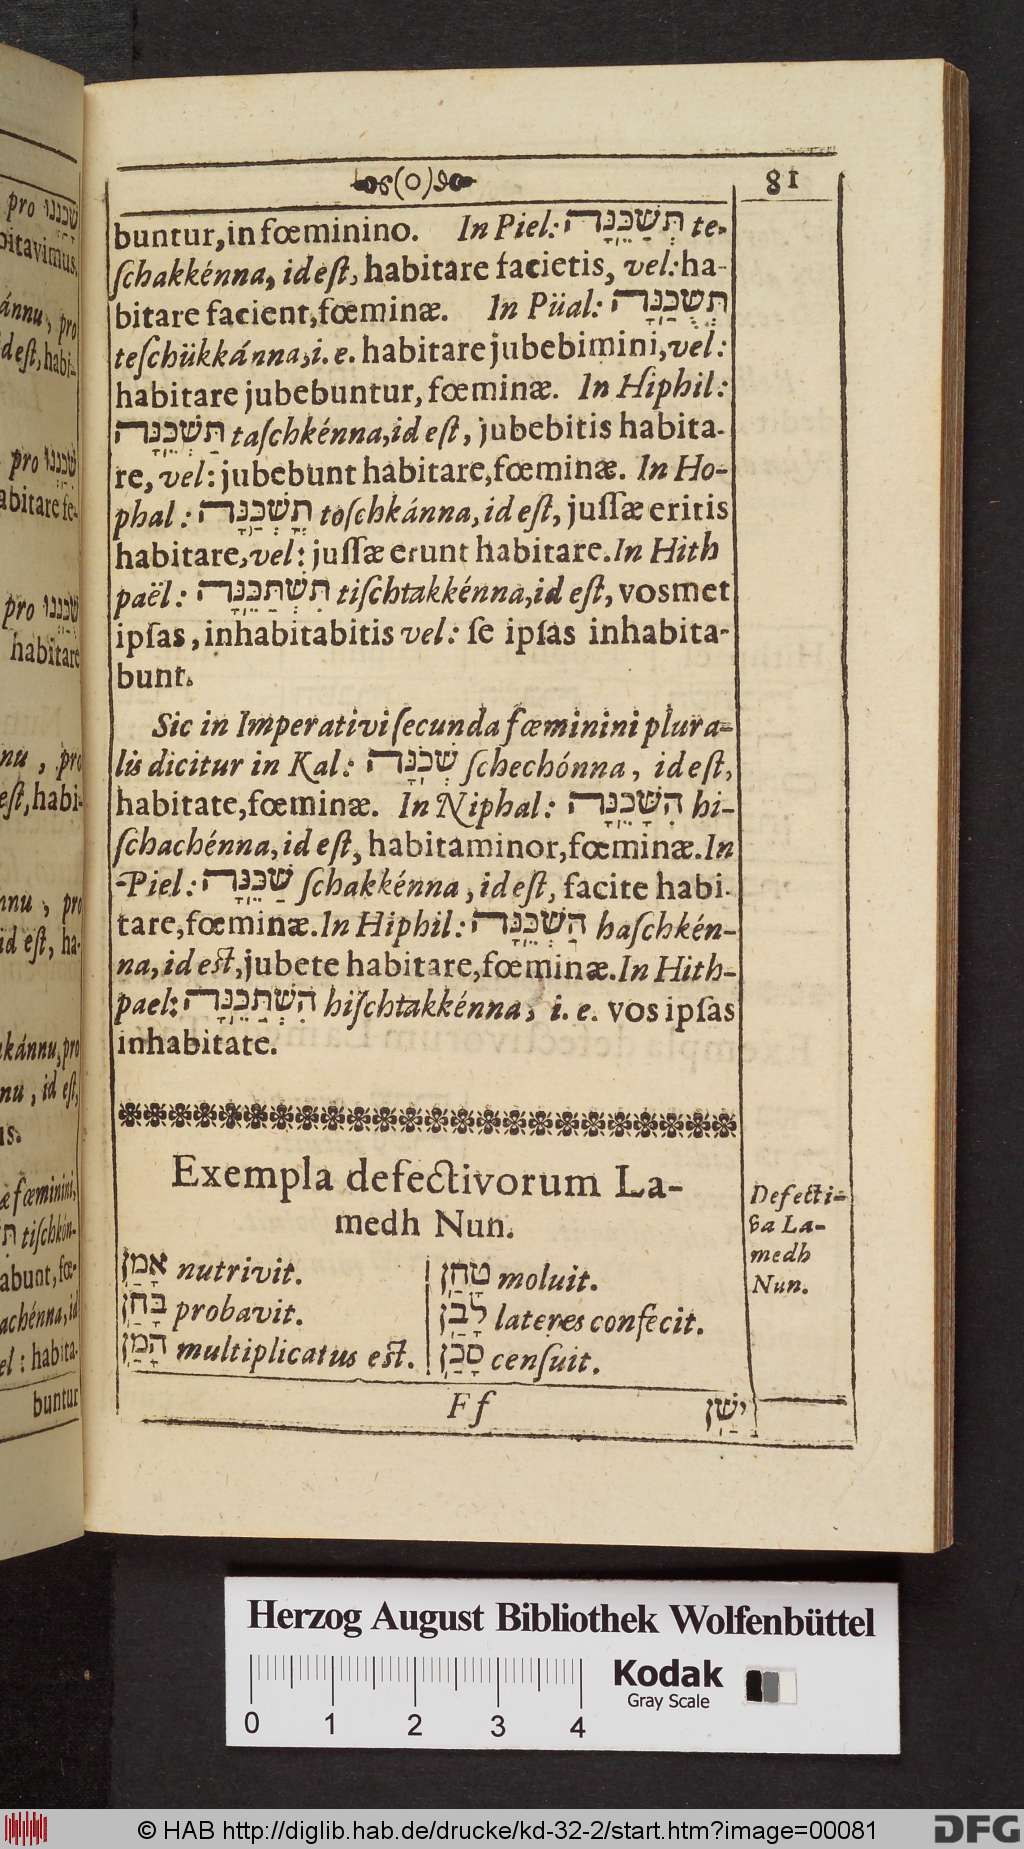 81
buntur, in fœminino. In Piel: תְּשַׁכֵּנָּה te-
ſchakkénna, id eſt, habitare facietis, vel: ha-
bitare facient, fœminæ. In Püal: תְּשֻׁכַּנָּה
teſchükkánna, i. e. habitare jubebimini, vel:
habitare jubebuntur, fœminæ. In Hiphil:
תַּשְׁכֵּנָּה taſchkénna, id eſt, jubebitis habita-
re, vel: jubebunt habitare, fœminæ. In Ho-
phal: תָּשְׁכַּנָּה toſchkánna, id eſt, juſſæ eritis
habitare, vel: juſſæ erunt habitare. In Hith
paël: תִּשְׁתַּכֵּנָּה tiſchtakkénna, id eſt, vosmet
ipſas, inhabitabitis vel: ſe ipſas inhabita-
bunt.
Sic in Imperativi ſecunda fœminini plura-
lis dicitur in Kal: שְׁכֹנָּה ſchechónna, id eſt,
habitate, fœminæ. In Niphal: הִשָּׁכֵנָּה hi-
ſchachénna, id eſt, habitaminor, fœminæ. In
Piel: שַׁכֵּנָּה ſchakkénna, id eſt, facite habi-
tare, fœminæ. In Hiphil: הַשְׁכֵּנָּה haſchkén-
na, id eſt, jubete habitare, fœminæ. In Hith-
pael: הִשְׁתַּכֵּנָּה hiſchtakkénna, i. e. vos ipſas
inhabitate.
Exempla defectivorum La-
medh Nun.
Defecti-
va La-
medh
Nun.
אָמַן nutrivit.
בָּחַן probavit.
הָמַן multiplicatus eſt.
טָחַן moluit.
לָבַן lateres confecit.
סָכַן cenſuit.
Ff
יָשַׁן
pro שָׁכַנְנוּ
bitavimus,
ánnu, pro
id eſt, habi-
pro
abitare fe-
pro
habitare
nnu, pro
eſt, habi-
nnu, pro
id eſt, ha-
kánnu, pro
nnu, id eſt,
is.
æ fœminini,
tiſchkón-
abunt, fœ-
achénna, id
el: habita-
buntur
Herzog August Bibliothek Wolfenbüttel
0 1 2 3 4
Kodak
Gray Scale
© HAB http://diglib.hab.de/drucke/kd-32-2/start.htm?image=00081
DFG